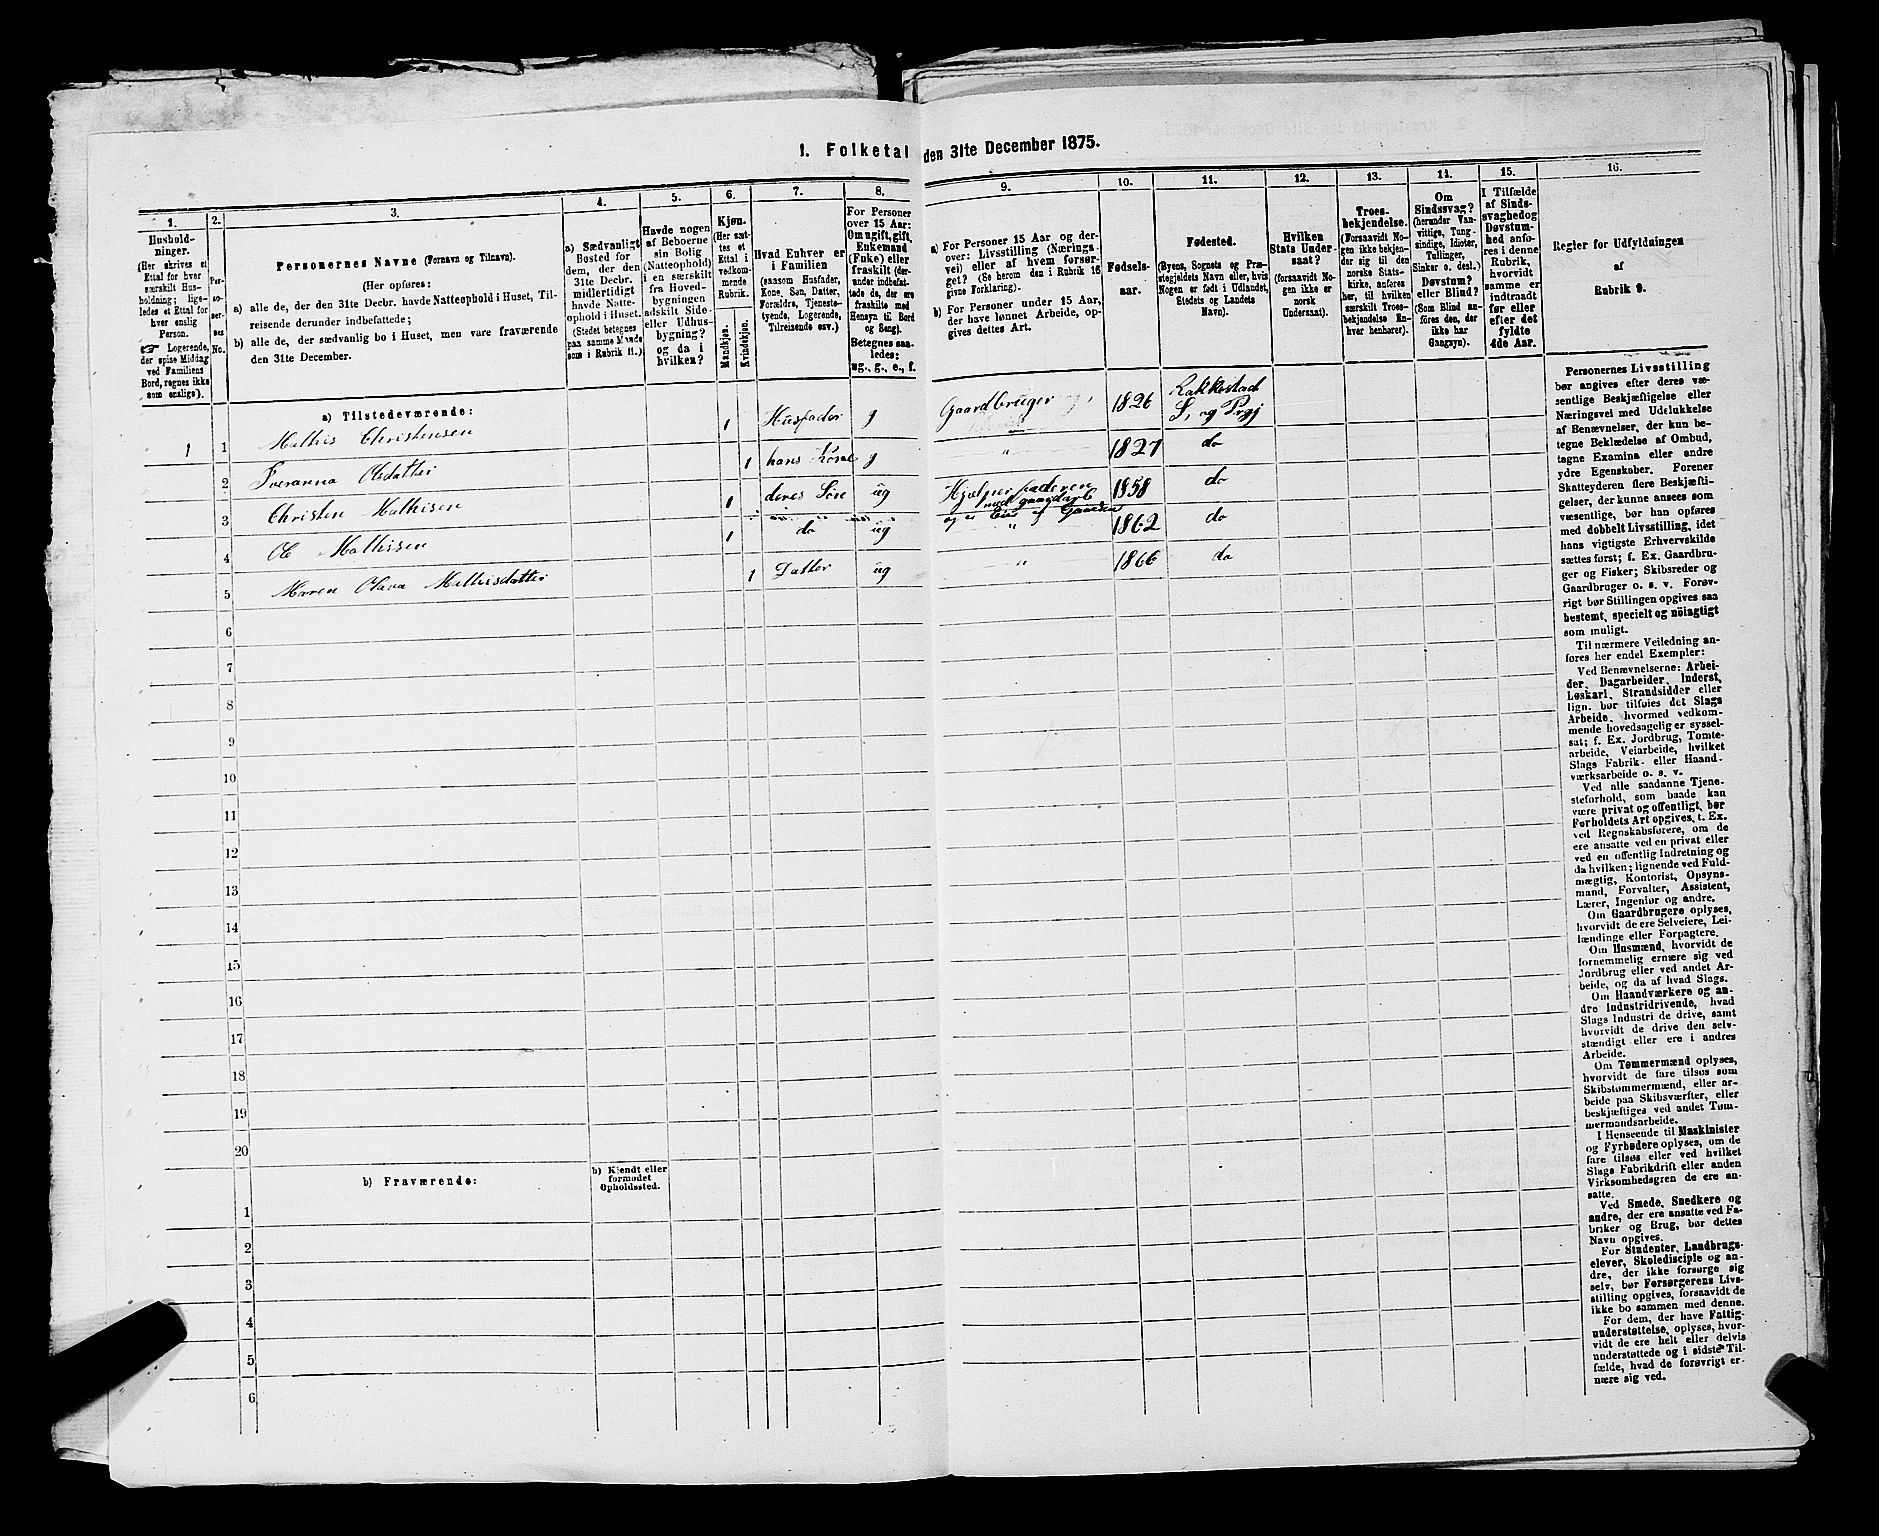 1. Folketal den 31te December 1875.
1.
Hushold-
ninger.
(Her skrives et
Ettal for hver
særskilt Hus-
holdning; lige-
ledes et Ettal for
hver enslig
Person.
☞ Logerende,
der spise Middag
ved Familiens
Bord, regnes ikke
som enslige).
2.
Per-
so-
ner-
nes
No.
3.
Personernes Navne (Fornavn og Tilnavn).
(Her opføres:
a) alle de, der den 31te Decbr. havde Natteophold i Huset, Til-
reisende derunder indbefattede;
b) alle de, der sædvanlig bo i Huset, men vare fraværende
den 31te December.
4.
a) Sædvanligt
Bosted for
dem, der den
31te Decbr.
midlertidigt
havde Natte-
ophold i Huset.
(Stedet betegnes
paa samme Maade
som i Rubrik 11.)
5.
Havde nogen
af Beboerne
sin Bolig
(Natteophold)
i en særskilt
fra Hoved-
bygningen
adskilt Side-
eller Udhus-
bygning?
og da i
hvilken?
6.
Kjøn.
(Her sæt-
tes et
Ettal i
vedkom-
mende
Rubrik.
Mandkjøn.
Kvindekjøn.
7.
Hvad Enhver er
i Familien
(saasom Husfader,
Kone, Søn, Datter,
Forældre, Tjeneste-
tyende, Logerende,
Tilreisende osv.)
8.
For Personer
over 15 Aar:
Om ugift, gift,
Enkemand
(Fuke) eller
fraskilt (der-
under indbefat-
tede de, der ere
fraskilte med
Hensyn til Bord
og Seng).
Betegnes saa-
ledes:
ug., g., e., f.
9.
a) For Personer 15 Aar og der-
over: Livsstilling (Nærings-
vei) eller af hvem forsør-
get? (Se herom den i Rubrik 16
givne Forklaring).
b) For Personer under 15 Aar,
der have lønnet Arbeide, op-
gives dettes Art.
10.
Fødsels-
aar.
11.
Fødested.
(Byens, Sognets og Præ-
stegjeldets Navn eller, hvis
Nogen er født i Udlandet,
Stedets og Landets
Navn).
12.
Hvilken
Stats Under-
saat?
(forsaavidt No-
gen ikke er
norsk
Undersaat).
13.
Troes-
bekjendelse.
(Forsaavidt No-
gen ikke bekjen-
der sig til den
norske Stats-
kirke, anføres
her, til hvilken
særskilt Troes-
bekjendelse En-
hver henhører).
14.
Om
Sindssvag?
(herunder Van-
vittige, Tung-
sindige, Idioter,
Tullinger,
Sinker o. desl.)
Døvstum?
eller Blind?
(Som Blind an-
føres den, der
ikke har
Gangsyn).
15.
I Tilfælde
af Sinds-
svaghed og
Døvstum-
hed anfø-
res i denne
Rubrik,
hvorvidt
samme er
indtraadt
før eller
efter det
fyldte
4de Aar.
16.
Regler for Udfyldningen
af
Rubrik 9.
a) Tilstedeværende:
1 1 Mathis Christensen 1 Husfader g Gaardbruger 1826 Rakkestad
S. og Prgj
2 Sveranna Olsdatter 1 hans Kone g " 1827 do
3 Christen Mathisen 1 deres Søn ug Hjælper faderen
med gaardarb 1858 do
4 Ole Mathisen 1 do ug " 1862 do
5 Maren Olava Mathisdatter 1 Datter ug " 1866 do
6
7
8
9
10
11
12
13
14
15
16
17
18
19
20
b) Fraværende:
b) Kjendt eller
formodet
Opholdssted.
1
2
3
4
5
6
Personernes Livsstilling
bør angives efter deres væ-
sentlige Beskjæftigelse eller
Næringsvei med Udelukkelse
af Benævnelser, der kun be-
tegne Beklædelse af Ombud,
tagne Examina eller andre
ydre Egenskaber. Forener
Skatteyderen flere Beskjæfti-
gelser, der kunne ansees som
væsentlige, bør han opføres
med dobbelt Livsstilling, idet
hans vigtigste Erhvervskilde
sættes først; f. Ex. Gaardbru-
ger og Fisker; Skibsreder og
Gaardbruger o. s. v. Forøv-
rigt bør Stillingen opgives saa
bestemt, specielt og nöiagtigt
som muligt.
Til nærmere Veiledning an-
føres her endel Exempler:
Ved Benævnelserne: Arbei-
der, Dagarbeider, Inderst,
Løskarl, Strandsidder eller
lign. bør tilføies det Slags
Arbeide, hvormed vedkom-
mende hovedsagelig er syssel-
sat; f. Ex. Jordbrug, Tomte-
arbeide, Veiarbeide, hvilket
Slags Fabrik- eller Haand-
værksarbeide o. s. v.
Ved alle saadanne Tjene-
steforhold, som baade kan
være privat og offentligt, bør
Forholdets Art opgives, t. Ex.
ved Regnskabsførere, om de
ere ansatte ved en privat eller
ved en offentlig Indretning og
da hvilken; lignende ved Fuld-
mægtig, Kontorist, Opsyns-
mand, Forvalter, Assistent,
Lærer, Ingeniør og andre.
Om Gaardbrugere oplyses,
hvorvidt de ere Selveiere, Lei-
lændinge eller Forpagtere.
Om Husmænd, hvorvidt de
fornemmelig ernære sig ved
Jordbrug eller ved andet Ar-
beide, og da af hvad Slags.
Om Haandværkere og an-
dre Industridrivende, hvad
Slags Industri de drive, samt
hvorvidt de drive den selv-
stændigt eller ere i andres
Arbeide.
Om Tømmermænd oplyses,
hvorvidt de fare tilsøs som
Skibstømmermænd, eller ar-
beide paa Skibsværfter, eller
beskjæftiges ved andet Tøm-
mermandsarbeide.
I Henseende til Maskinister
og Fyrbødere oplyses, om de
fare tilsøs eller ved hvilket
Slags Fabrikdrift eller anden
Virksomhedsgren de ere an-
satte.
Ved Smede, Snedkere og
andre, der ere ansatte ved Fa-
briker og Brug, bør dettes
Navn opgives.
For Studenter, Landbrugs-
elever, Skoledisciple og an-
dre, der ikke forsørge sig
selv, bør Forsørgerens Livs-
stilling opgives, forsaavidt de
ikke bo sammen med denne.
For dem, der have Fattig-
understøttelse, oplyses, hvor-
vidt de ere helt eller delvis
understøttede og i sidste Til-
fælde, hvad de forøvrigt er-
nære sig ved.